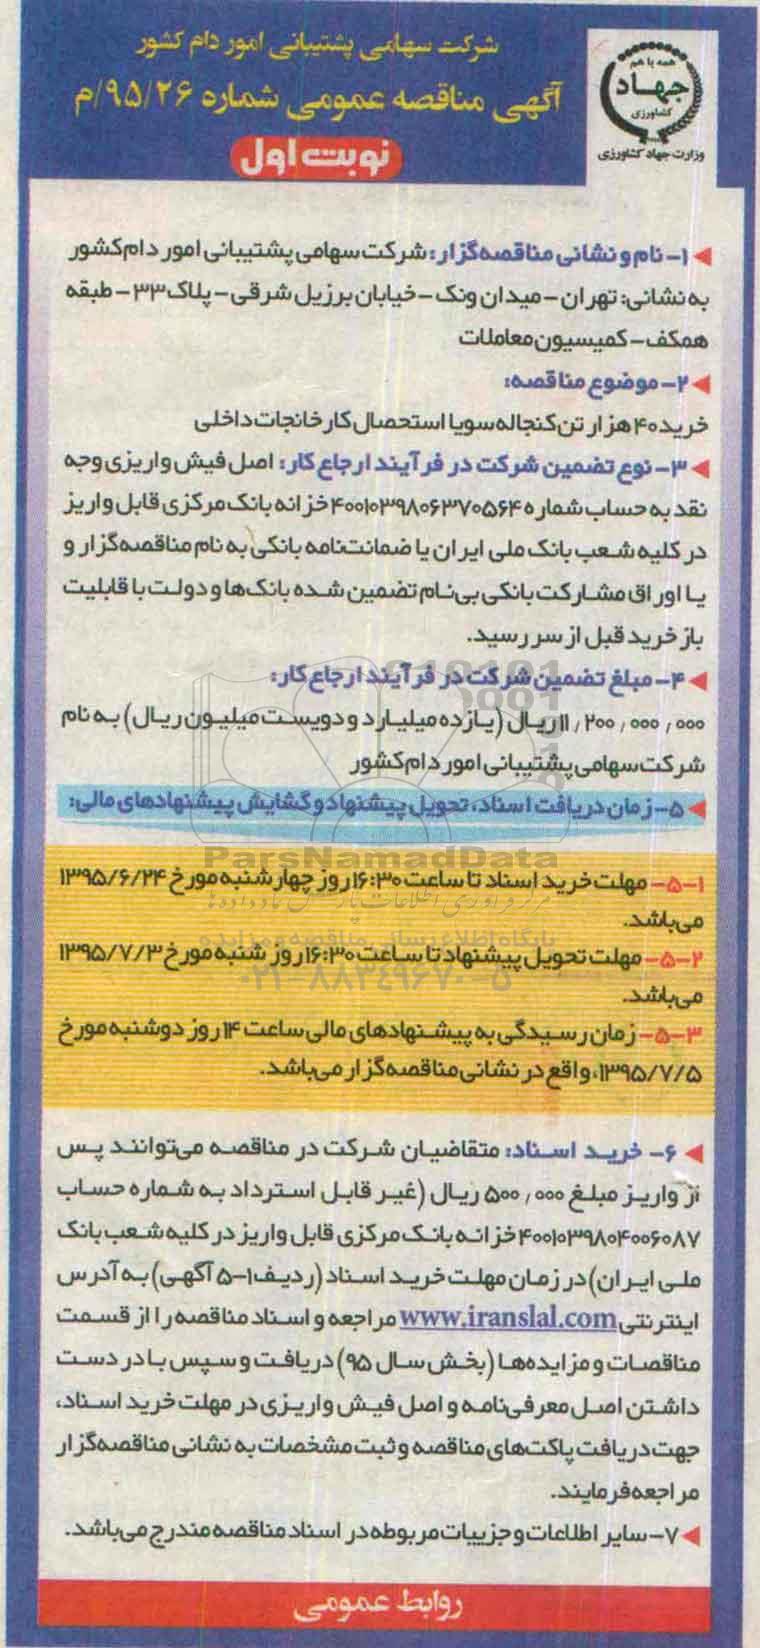 همه با هم
جهاد
کشاورزی
وزارت جهاد کشاورزی
شرکت سهامی پشتیبانی امور دام کشور
آگهی مناقصه عمومی شماره ۹۵/۲۶/م
نوبت اول
۱- نام و نشانی مناقصه‌گزار: شرکت سهامی پشتیبانی امور دام کشور
به نشانی: تهران - میدان ونک - خیابان برزیل شرقی - پلاک ۳۳ - طبقه
همکف - کمیسیون معاملات
۲- موضوع مناقصه:
خرید ۴۰ هزار تن کنجاله سویا استحصال کارخانجات داخلی
۳- نوع تضمین شرکت در فرآیند ارجاع کار: اصل فیش واریزی وجه
نقد به حساب شماره ۴۰۰۱۰۳۹۸۰۶۳۷۰۵۶۴ خزانه بانک مرکزی قابل واریز
در کلیه شعب بانک ملی ایران یا ضمانت‌نامه بانکی به نام مناقصه‌گزار و
یا اوراق مشارکت بانکی بی‌نام تضمین شده بانک‌ها و دولت با قابلیت
بازخرید قبل از سررسید.
۴- مبلغ تضمین شرکت در فرآیند ارجاع کار:
۱۱/۲۰۰/۰۰۰/۰۰۰ ریال (یازده میلیارد و دویست میلیون ریال) به نام
شرکت سهامی پشتیبانی امور دام کشور
۵- زمان دریافت اسناد، تحویل پیشنهاد و گشایش پیشنهادهای مالی:
ParsNamadData
۵-۱- مهلت خرید اسناد تا ساعت ۱۶:۳۰ روز چهارشنبه مورخ ۱۳۹۵/۶/۲۴
می‌باشد.
مرکز فرآوری اطلاعات پارس نماد داده ها
پایگاه اطلاع رسانی مناقصه و مزایده
۵-۲- مهلت تحویل پیشنهاد تا ساعت ۱۶:۳۰ روز شنبه مورخ ۱۳۹۵/۷/۳
می‌باشد.
۰۲۱-۸۸۳۴۹۶۷۰-۵
۵-۳- زمان رسیدگی به پیشنهادهای مالی ساعت ۱۴ روز دوشنبه مورخ
۱۳۹۵/۷/۵، واقع در نشانی مناقصه‌گزار می‌باشد.
۶- خرید اسناد: متقاضیان شرکت در مناقصه می‌توانند پس
از واریز مبلغ ۵۰۰/۰۰۰ ریال (غیر قابل استرداد به شماره حساب
۴۰۰۱۰۳۹۸۰۴۰۰۶۰۸۷ خزانه بانک مرکزی قابل واریز در کلیه شعب بانک
ملی ایران) در زمان مهلت خرید اسناد (ردیف ۱-۵ آگهی) به آدرس
اینترنتی www.iranslal.com مراجعه و اسناد مناقصه را از قسمت
مناقصات و مزایده‌ها (بخش سال ۹۵) دریافت و سپس با در دست
داشتن اصل معرفی‌نامه و اصل فیش واریزی در مهلت خرید اسناد،
جهت دریافت پاکت‌های مناقصه و ثبت مشخصات به نشانی مناقصه‌گزار
مراجعه فرمایند.
۷- سایر اطلاعات و جزییات مربوطه در اسناد مناقصه مندرج می‌باشد.
روابط عمومی